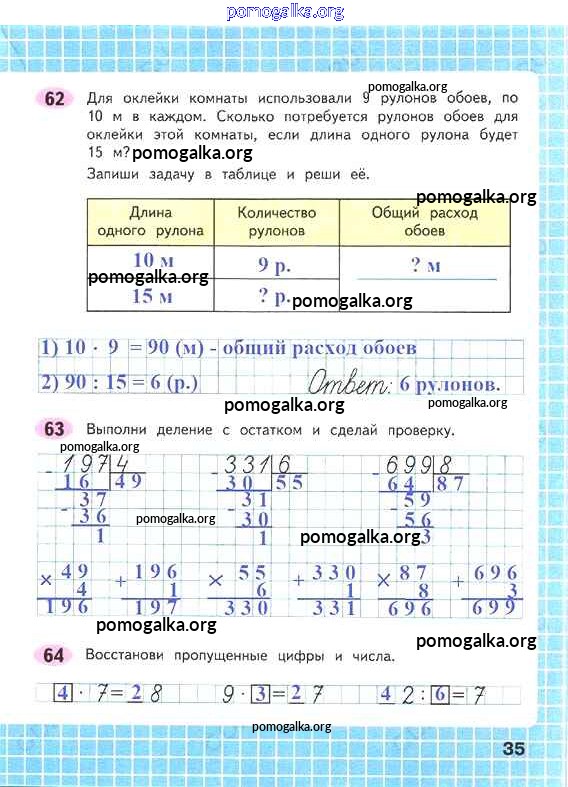 pomogalka.org
pomogalka.org
62 Для оклейки комнаты использовали 9 рулонов обоев, по
10 м в каждом. Сколько потребуется рулонов обоев для
оклейки этой комнаты, если длина одного рулона будет
15 м? pomogalka.org
Запиши задачу в таблице и реши её.
pomogalka.org
Длина одного рулона Количество рулонов Общий расход обоев
10 м 9 р. ? м
pomogalka.org
15 м ? р. pomogalka.org
1) 10 · 9 = 90 (м) - общий расход обоев
2) 90 : 15 = 6 (р.) Ответ: 6 рулонов.
pomogalka.org pomogalka.org
63 Выполни деление с остатком и сделай проверку.
pomogalka.org
- 197 4 - 331 6 - 699 8
16 49 30 55 64 87
- 37 - 31 - 59
36 30 56
pomogalka.org
1 1 3
pomogalka.org
× 49 + 196 × 55 + 330 × 87 + 696
4 1 6 1 8 3
196 197 330 331 696 699
pomogalka.org
pomogalka.org
64 Восстанови пропущенные цифры и числа.
4 · 7 = 2 8 9 · 3 = 2 7 4 2 : 6 = 7
pomogalka.org
35